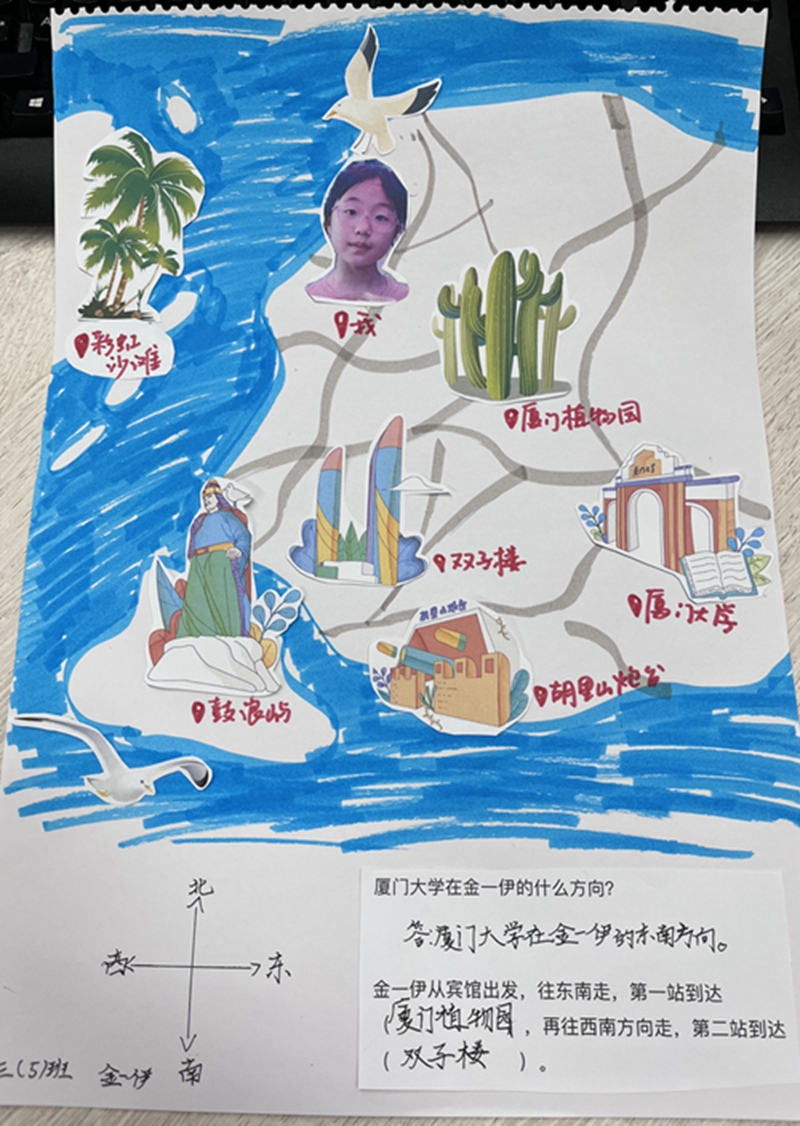 我
彩虹
沙滩
厦门植物园
双子楼
厦门大学
胡里山炮台
胡里山炮台
鼓浪屿
北
西
东
南
三(5)班 金一伊
厦门大学在金一伊的什么方向？
答:厦门大学在金一伊的东南方向。
金一伊从宾馆出发，往东南走，第一站到达
(厦门植物园，再往西南方向走，第二站到达
( 双子楼 )。